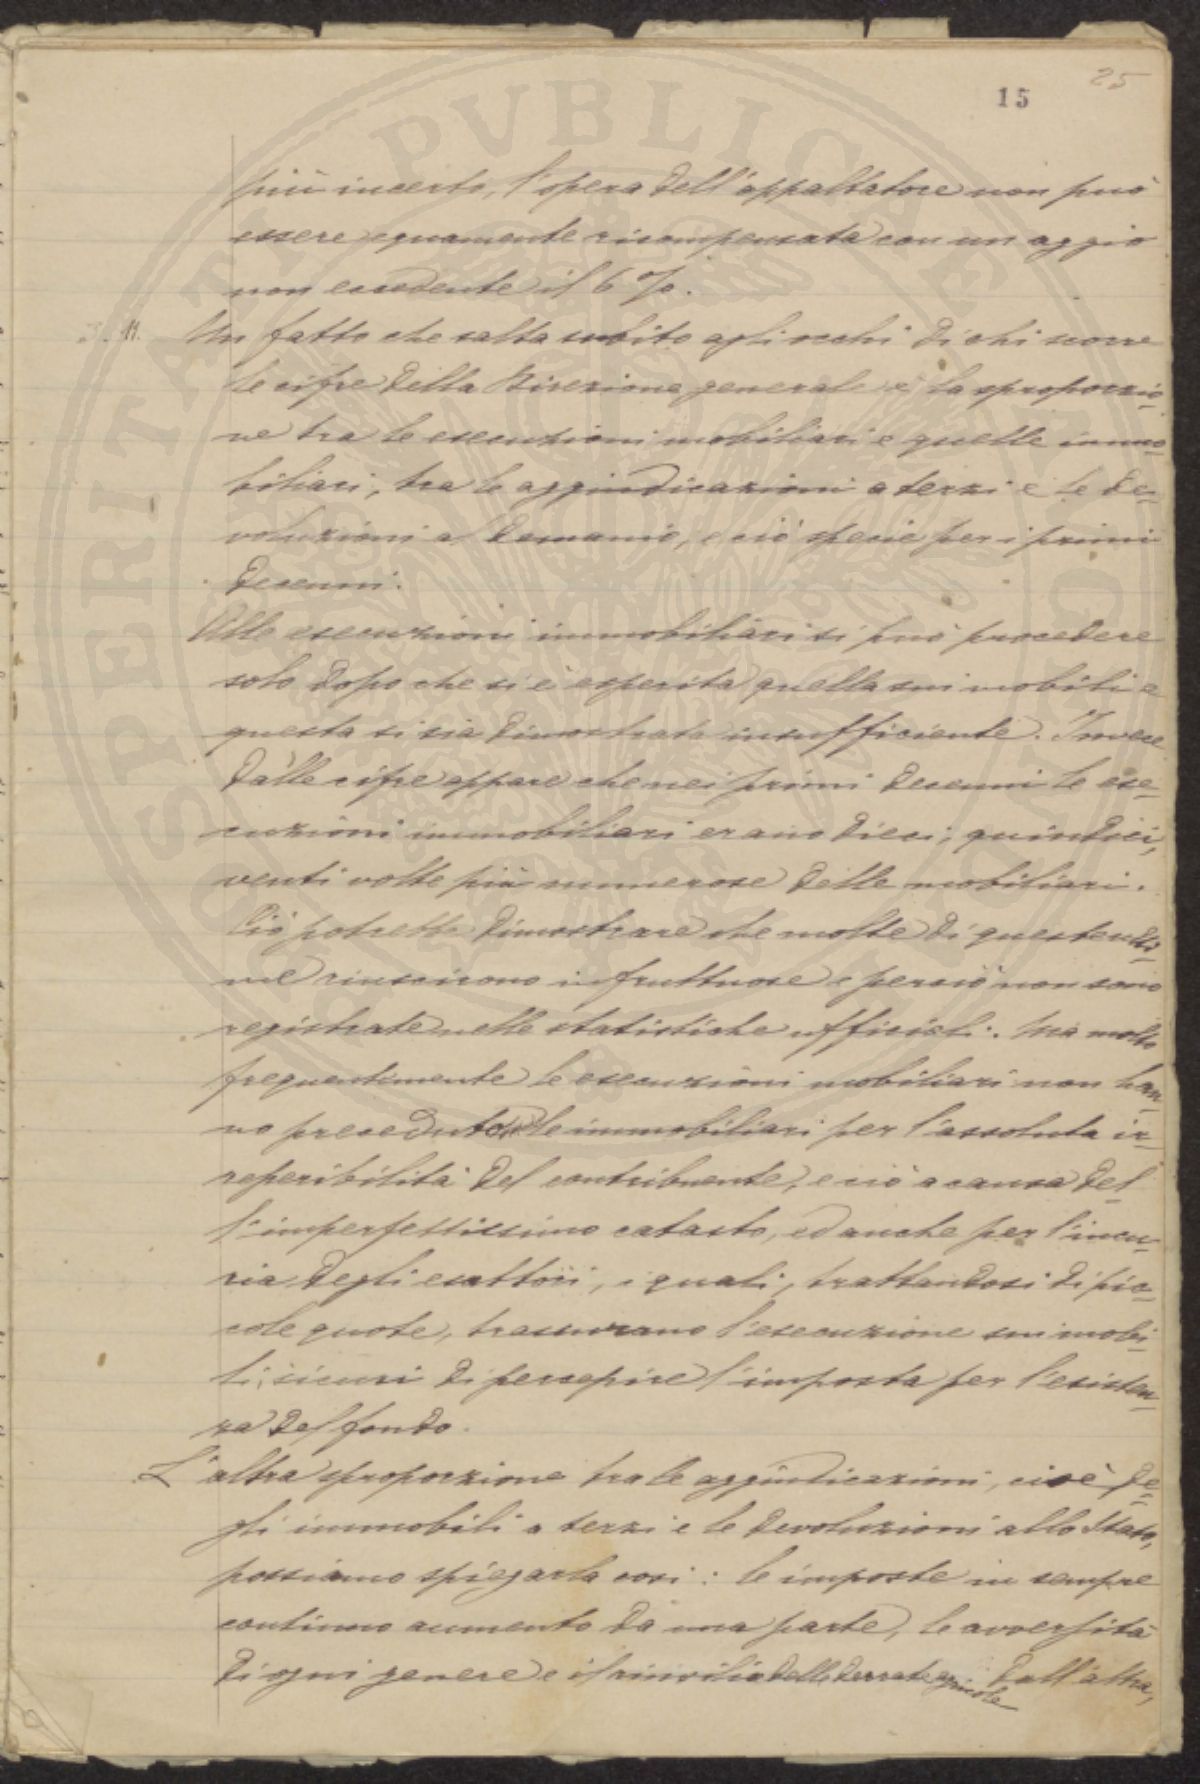 25
15
più incerto, l'opera dell'appaltatore non può
essere equamente ricompensata con un aggio
non eccedente il 6%.
11. Un fatto che salta subito agli occhi di chi scorre
le cifre della Direzione generale è la sproporzio-
ne tra le esecuzioni mobiliari e quelle immo-
biliari, tra le aggiudicazioni a terzi e le de-
voluzioni al Demanio, e ciò specie per i primi
decenni.
Alle esecuzioni immobiliari si può procedere
solo dopo che si è esperita quella sui mobili e
questa si sia dimostrata insufficiente. Invece
dalle cifre appare che nei primi decenni le ese-
cuzioni immobiliari erano dieci, quindici,
venti volte più numerose delle mobiliari.
Ciò potrebbe dimostrare che molte di queste ulti-
me riuscirono infruttuose e perciò non sono
registrate nelle statistiche ufficiali. Ma molto
frequentimente le esecuzioni mobiliari non han-
no preceduto le immobiliari per l'assoluta ir-
reperibilità del contribuente, e ciò a causa del-
l'imperfettissimo catasto, ed anche per l'incu-
ria degli esattori, i quali, trattandosi di pic-
cole quote, trascurano l'esecuzione sui mobi-
li, sicuri di percepire l'imposta per l'esisten-
za del fondo.
L'altra sproporzione tra le aggiudicazioni, cioè de-
gli immobili a terzi e le devoluzioni allo Stato,
possiamo spiegarla così: le imposte in sempre
continuo aumento da una parte, le avversità
di ogni genere e il rinvilio delle derrate agricole dall'altra,
PROSPERITATI PVBLICAE